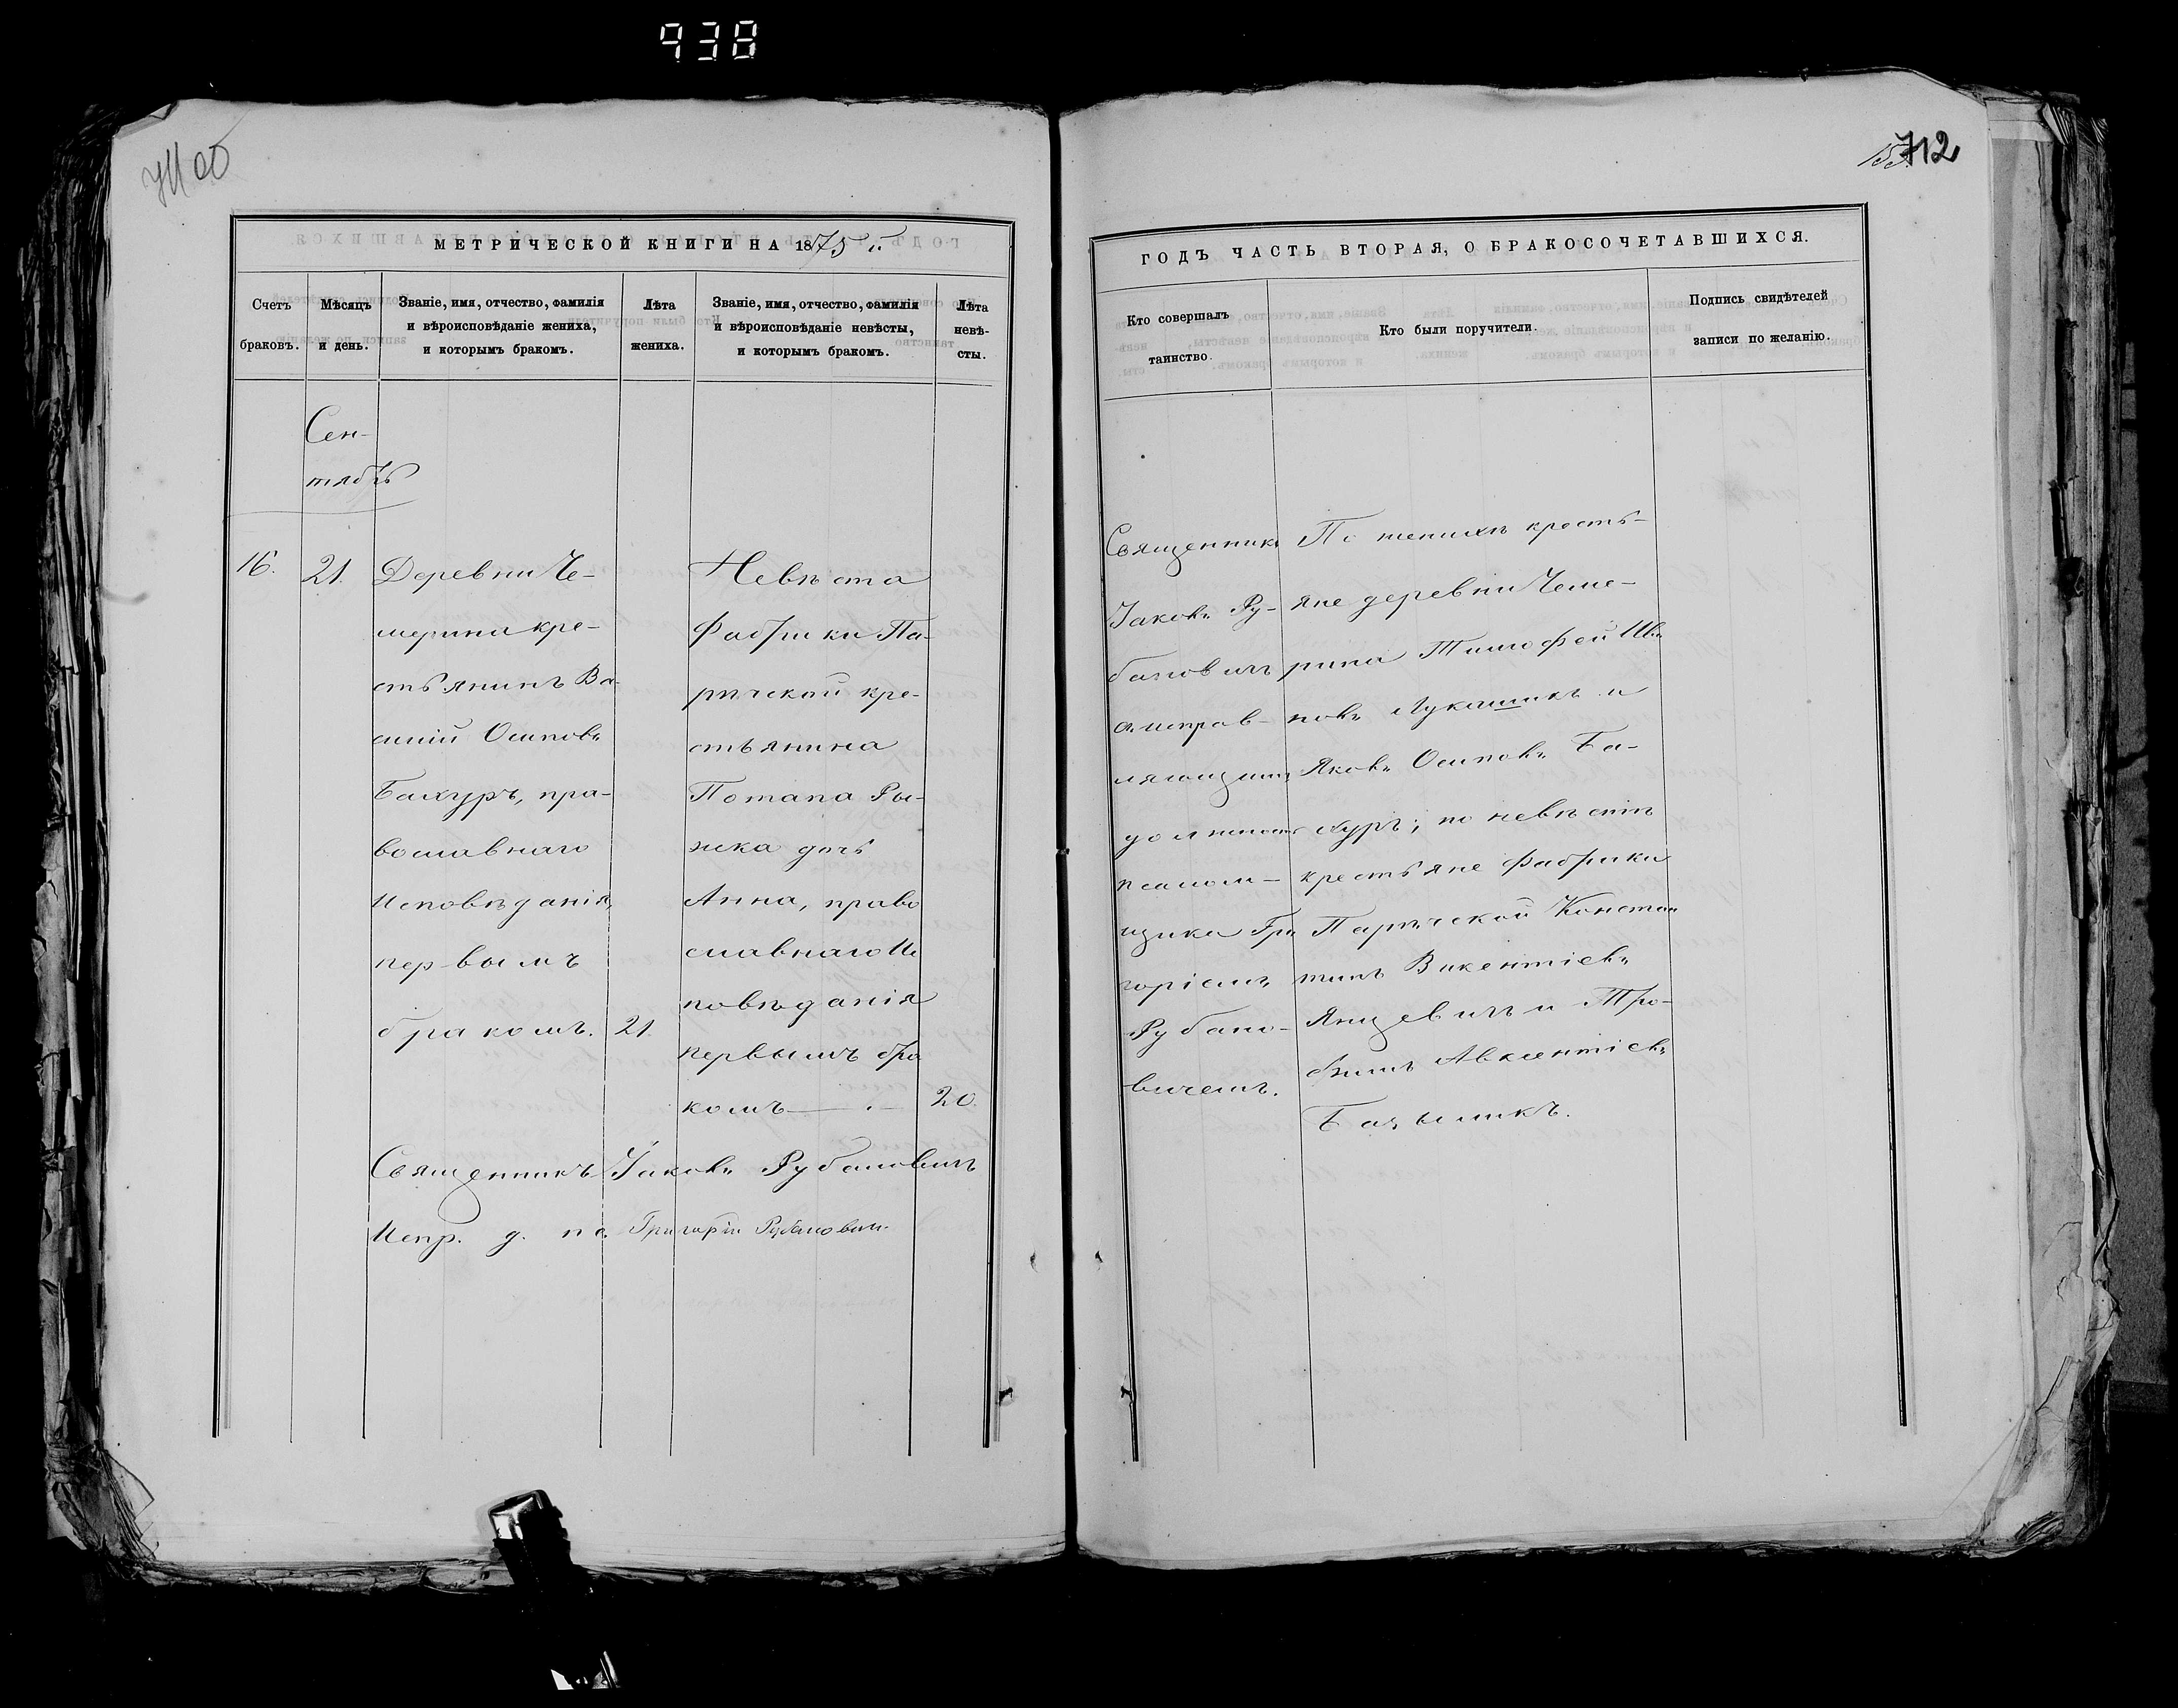 938
712
МЕТРИЧЕСКОЙ КНИГИ НА 1875 й
Счетъ браковъ.
Мѣсяцъ и день.
Званіе, имя, отчество, фамилія и вѣроисповѣданіе жениха, и которымъ бракомъ.
Лѣта жениха.
Званіе, имя, отчество, фамилія и вѣроисповѣданіе невѣсты, и которымъ бракомъ.
Лѣта невѣ-
сты.
Сен-
тябрь
16.
21.
Деревни Че-
мерина кре-
стьянинъ Ва-
силій Осиповъ
Бахуръ, пра-
вославнаго
исповѣданія,
первымъ
бракомъ.
21.
Невѣста
Фабрики Па-
ричской кре-
стьянина
Потапа Ры-
жка дочь
Анна, право
славнаго Ис
повѣданія
первымъ бра
комъ
20.
Священникъ Іаковъ Рубановичъ
Испр. д. пс. Григорій Рубановичъ
ГОДЪ ЧАСТЬ ВТОРАЯ, О БРАКОСОЧЕТАВШИХСЯ.
Кто совершалъ
таинство.
Кто были поручители.
Подпись свидѣтелей
записи по желанію.
Священникъ
Іаковъ Ру-
бановичъ
с исправ-
ляющимъ
должность
псалом-
щика Гри
горіемъ
Рубано-
вичемъ.
По женихѣ кресть-
яне деревни Чеме-
рина Тимофей Ива
новъ Лукашикъ и
Яковъ Осиповъ Ба-
хуръ; по невѣстѣ
крестьяне Фабрики
Паричской Констан
тинъ Викентіевъ
Янцевичъ и Тро-
фимъ Авксентіевъ